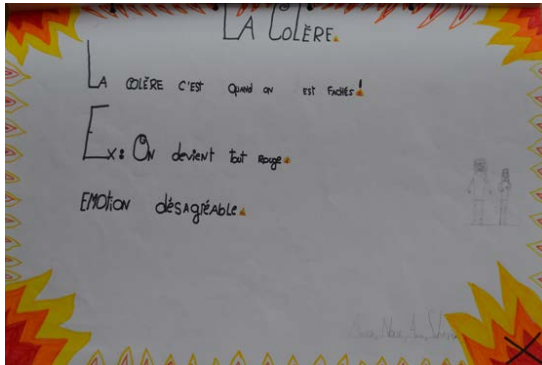 LA COLÈRE.
LA COLÈRE C'EST QUAND ON EST FACHÉS!
EX: ON devient tout ROUGE.
EMOTION désAgréAble.